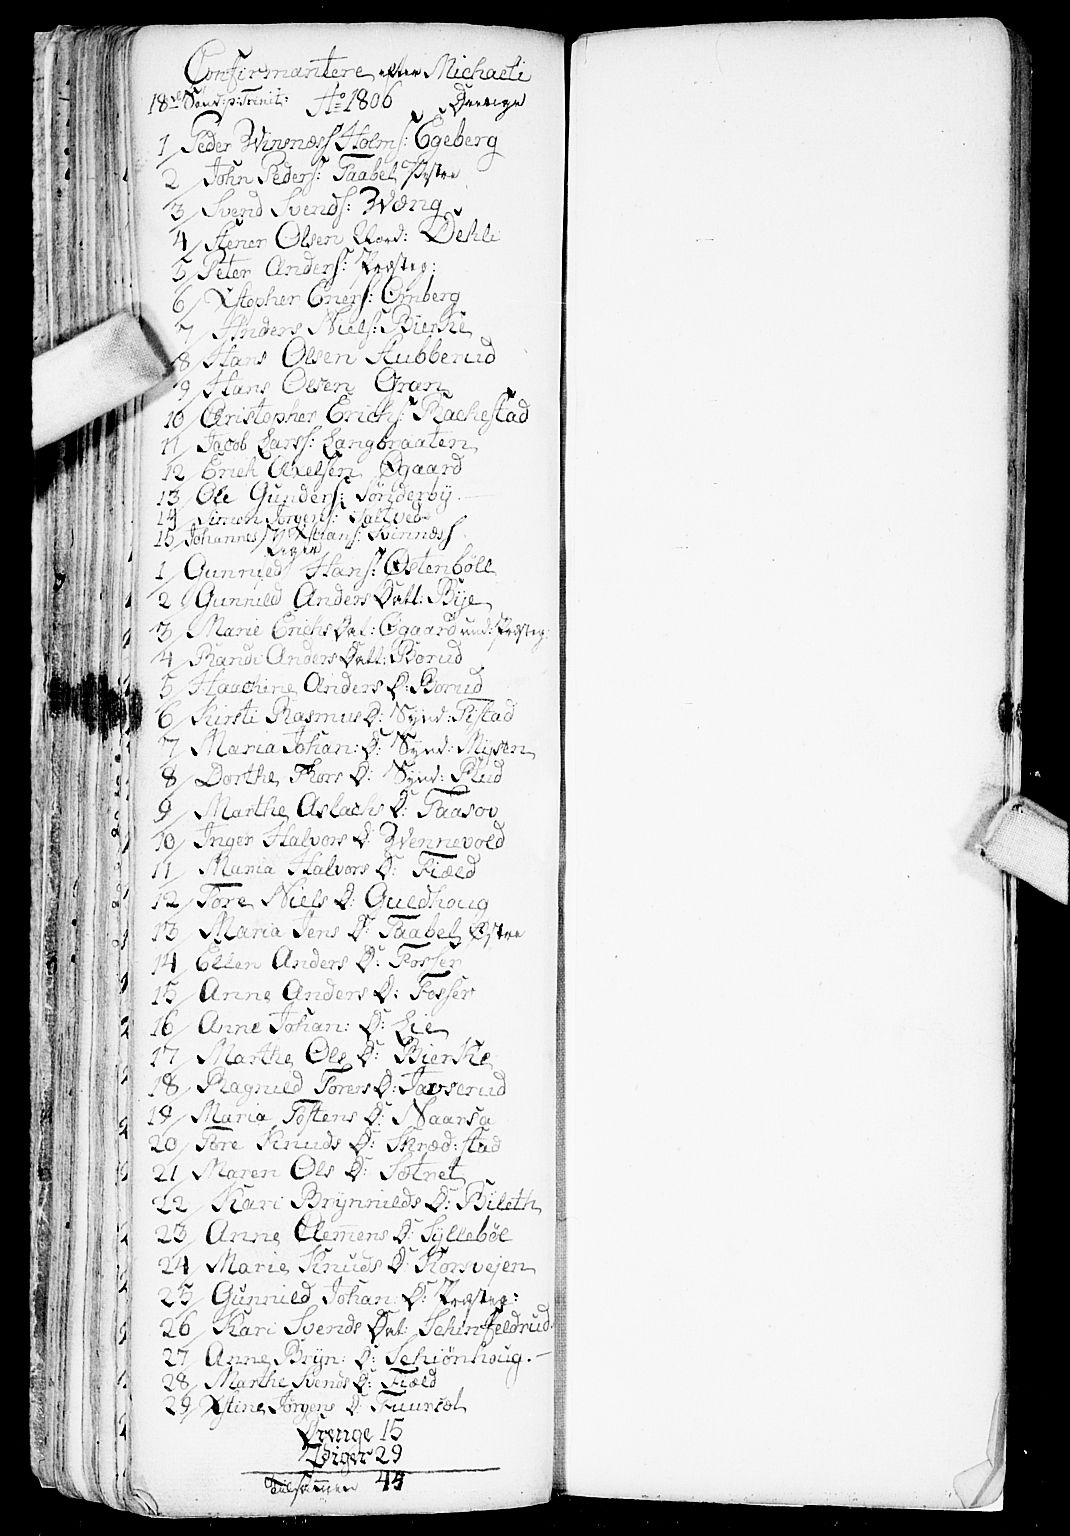 Confirmantere efter Michaeli
18de Sønd: p: Trinit: Ao 1806 Drenge
1 Peder Winsnæss Holms: Egeberg
2 John Peders: Taabel Østre
3 Svend Svends: Wæng
4 Stener Olsen Nord: Dehli
5 Peter Anders: Præsteg:
6 Xstopher Eners: Omberg
7 Anders Niels: Bierke
8 Hans Olsen Hubberud
9 Hans Olsen Gran
10 Christopher Erichs: Rachestad
11 Jacob Larss: Langbraaten
12 Erich Axelsen Øgaard
13 Ole Gunders: Sønderby
14 Simon Jørgens: Saltved
15 Johannes Xstians: Svinnæss
Piger
1 Gunnild Hans: Østenbøll
2 Gunnild Anders Datt: Bye
3 Marie Erichs Dat: Øgaard und: Præsteg:
4 Randi Anders Datt: Borud
5 Haachine Anders D: Borud
6 Kirsti Rasmus D: Synd: Fistad
7 Maria Johan: D: Synd: Mysen
8 Dorthe Thors D: Synd: Rud
9 Marthe Aslachs D: Taasov
10 Inger Halvors D: Wennevold
11 Maria Halvors D: Fiæld
12 Tore Niels D: Guldhoug
13 Maria Jens D: Taabel Østre
14 Ellen Anders D: Fosser
15 Anne Anders D: Fosser
16 Anne Johan: D: Lie
17 Marthe Ols D: Bierke
18 Ragnild Torers D: Tavserud
19 Maria Tostens D: Naarsa
20 Tore Knuds D: Skræd:stad
21 Maren Ols D: Søtnet
22 Kari Brynnilds D: Bileth
23 Anne Clemens D: Syllebøl
24 Marie Knuds D: Korsvejen
25 Gunnild Johan: D: Præsteg:
26 Kari Svends Dat: Schinfeldrud
27 Anne Bryn: D: Schiønhoug.
28 Marthe Svends D: Fiæld
29 Xstine Jørgens D: Fuursæt
Drenge 15
Piger 29
Tilsammen 44